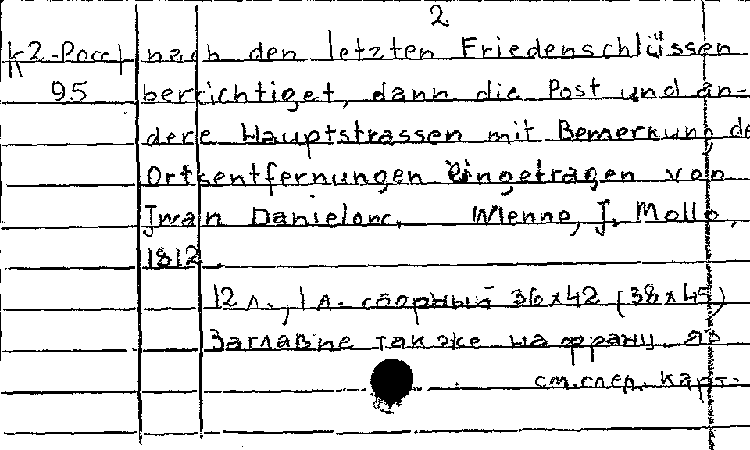 2
К2-Росс nach den letzten Friedenschlüssen
95 berichtiget, dann die Post und an-
dere Hauptstrassen mit Bemerkung de
Ortsentfernungen eingetragen von
Iwan Danielow. Wienne, J. Mollo,
1812.
12 л., 1 л. сборный 36x42 (38x45)
Заглавие также на франц. яз
см. след. карт.